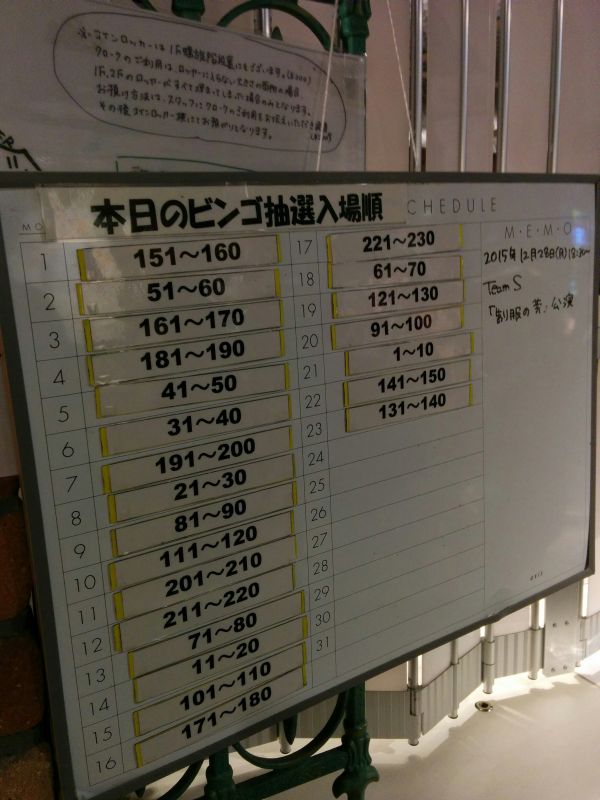 ※コインロッカーは1F螺旋階段裏にもございます。(¥300)
クロークのご利用は、ロッカーに入らない大きさの荷物の場合、
1F,2Fのロッカーがすべて埋まってしまった場合のみとなります。
お預け方法は、スタッフにクロークのご利用をお伝えいただき
その後コインロッカー横にてお預かりとなります。
本日のビンゴ抽選入場順
CHEDULE
MO
M・E・M・O
1 151～160
2 51～60
3 161～170
4 181～190
5 41～50
6 31～40
7 191～200
8 21～30
9 81～90
10 111～120
11 201～210
12 211～220
13 71～80
14 11～20
15 101～110
16 171～180
17 221～230
18 61～70
19 121～130
20 91～100
21 1～10
22 141～150
23 131～140
24
25
26
27
28
29
30
31
2015年12月28日(月)18:30～
Team S
「制服の芽」公演